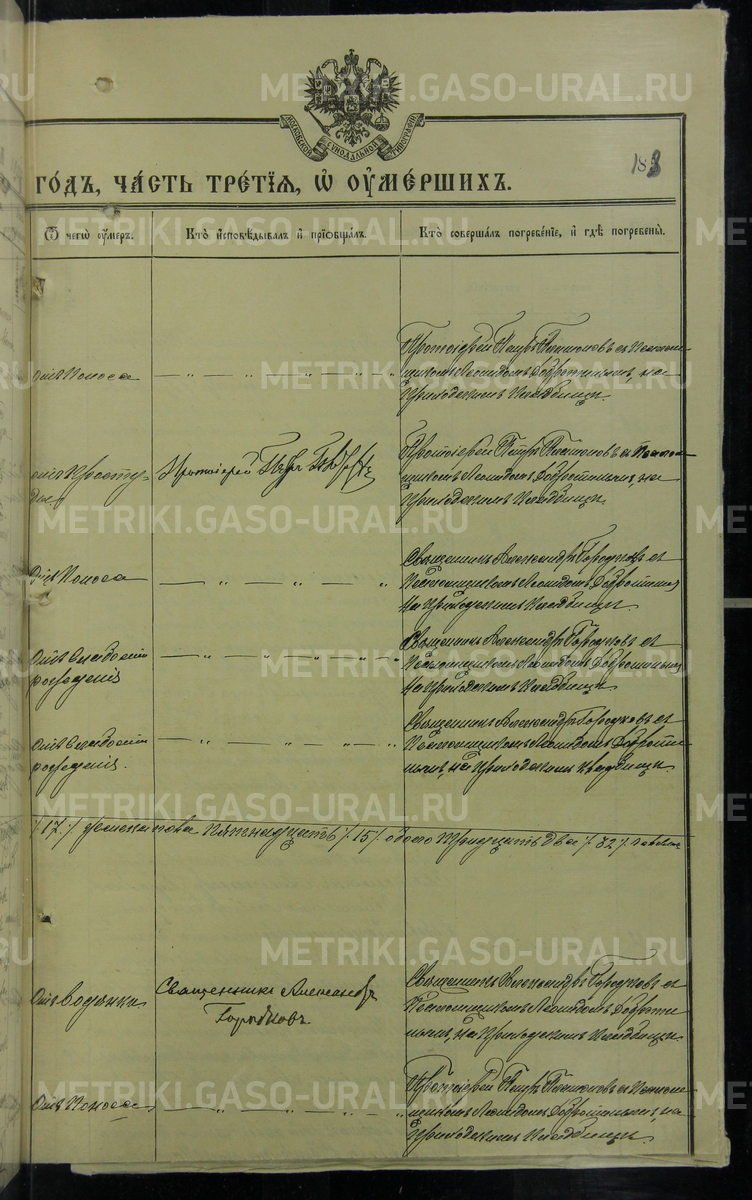 МОСКОВСКОЙ СѴНОДАЛЬНОЙ ТИПОГРАФІИ
183
ГОДЪ, ЧАСТЬ ТРЕТІЯ, Ѡ ОУМЕРШИХЪ.
Ѿ чегѡ оумеръ.
Кто исповѣдывалъ и пріобщалъ.
Кто совершалъ погребеніе, и гдѣ погребены.
отъ Поноса
— „ — „ — „ — „
Протоіерей Петръ
Псалом-
щикомъ Леонидомъ Добротинымъ, на
Приходскомъ Кладбищѣ.
отъ Просту-
ды
Протоіерей Петръ
Протоіерей Петръ
съ Псалом-
щикомъ Леонидомъ Добротинымъ, на
Приходскомъ Кладбищѣ.
Отъ Поноса
— „ — „ — „
Священникъ Александръ Городковъ съ
Псаломщикомъ Леонидомъ Добротинымъ
на Приходскомъ Кладбищѣ.
Отъ Слабости
рожденія
— „ — „ — „ — „
Священникъ Александръ Городковъ съ
Псаломщикомъ Леонидомъ Добротинымъ
на Приходскомъ Кладбищѣ.
Отъ Слабости
рожденія.
— „ — „ — „ — „
Священникъ Александръ Городковъ съ
Псаломщикомъ Леонидомъ Доброти-
нымъ, на Приходскомъ Кладбищѣ.
/17./ женскаго пола Пятнадцать /15/ обоего Тридцать два /32/
Отъ Водянки
Священникъ Александръ
Городковъ.
Священникъ Александръ Городковъ съ
Псаломщикомъ Леонидомъ Доброти-
нымъ, на Приходскомъ Кладбищѣ.
Отъ Поноса
— „ — „ — „ — „
Протоіерей Петръ
съ Псалом-
щикомъ Леонидомъ Добротинымъ, на
Приходскомъ Кладбищѣ.
METRIKI.GASO-URAL.RU